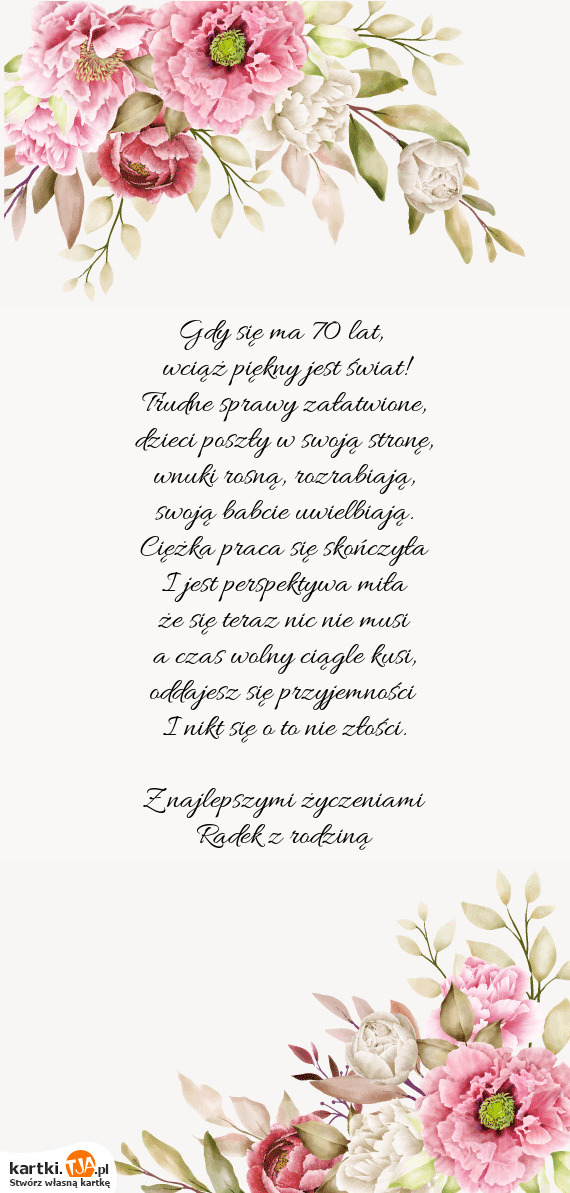 Gdy się ma 70 lat,
wciąż piękny jest świat!
Trudne sprawy załatwione,
dzieci poszły w swoją stronę,
wnuki rosną, rozrabiają,
swoją babcie uwielbiają.
Ciężka praca się skończyła
I jest perspektywa miła
że się teraz nic nie musi
a czas wolny ciągle kusi,
oddajesz się przyjemności
I nikt się o to nie złości.
Z najlepszymi życzeniami
Radek z rodziną
kartki.TJA.pl
Stwórz własną kartkę